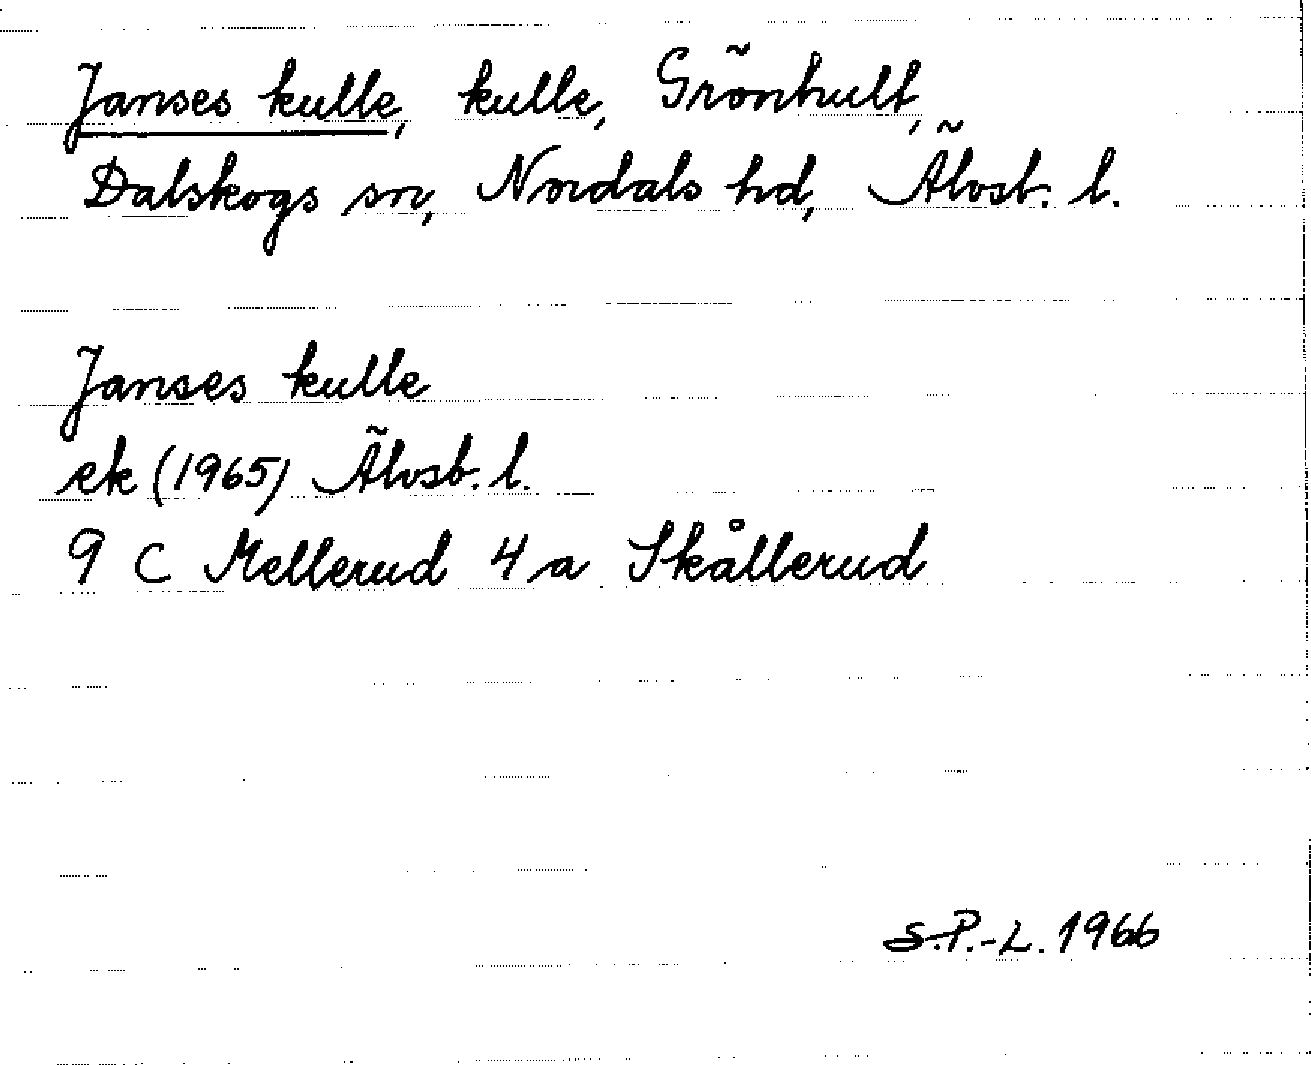 Janses kulle, kulle, Grönhult,
Dalskogs sn, Nordals hd, Älvsb. l.
Janses kulle
ek (1965) Älvsb. l.
9 C Mellerud 4 a Skållerud
S.P.-L. 1966